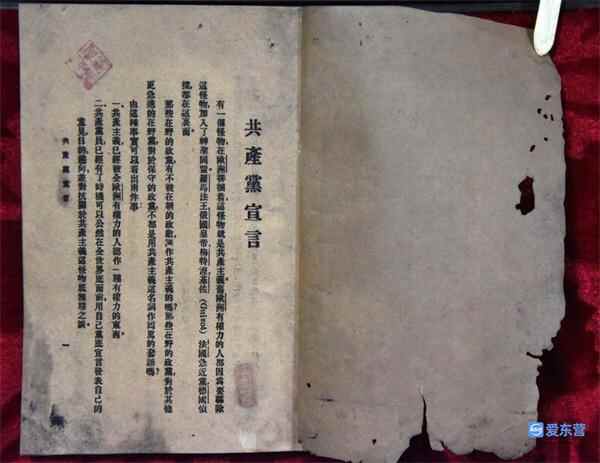 共產黨宣言
有一個怪物，在歐洲徘徊着，這怪物就是共產主義。舊歐洲有權力的人都因爲要驅除
這怪物，加入了神聖同盟。羅馬法王，俄國皇帝，梅特涅，基佐（Guizot），法國急進黨，德國偵
探，都在這裏面。
那些在野的政黨，有不被在朝的政敵，誣作共產主義的嗎？那些在野的政黨，對於其他
更急進的在野黨，對於保守的政黨，不都是用共產主義這名詞作回罵的套語嗎？
由這種事實可以看出兩件事：
一、共產主義，已經被全歐洲有權力的人認作一種有權力的東西。
二、共產黨員，已經有了時機可以公然在全世界底面前，用自己黨底宣言發表自己的
黨見，目的，趨向，並對抗關於共產主義這怪物底無稽之談。
共產黨宣言
一
爱东营